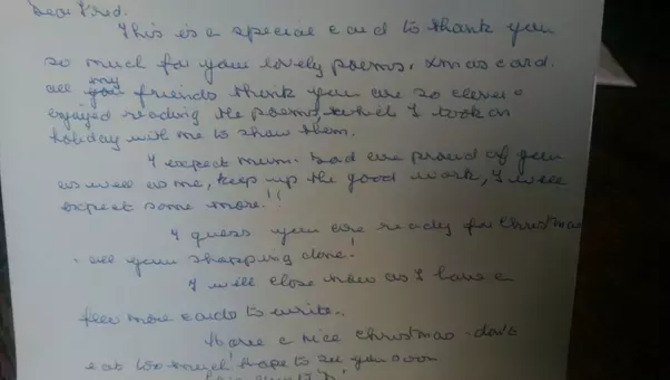 Dear
This is a special card to thank you
so much for your lovely poems, xmas card.
all my friends think you are so clever &
enjoyed reading the poems, which I took on
holiday with me to show them.
I expect mum. Dad are proud of you
as well as me, keep up the good work, I will
expect some more!!
I guess you are ready for Christmas
- all your shopping done!
I will close now as I have a
few more cards to write.
Have a nice Christmas - don't
eat too much hope to see you soon